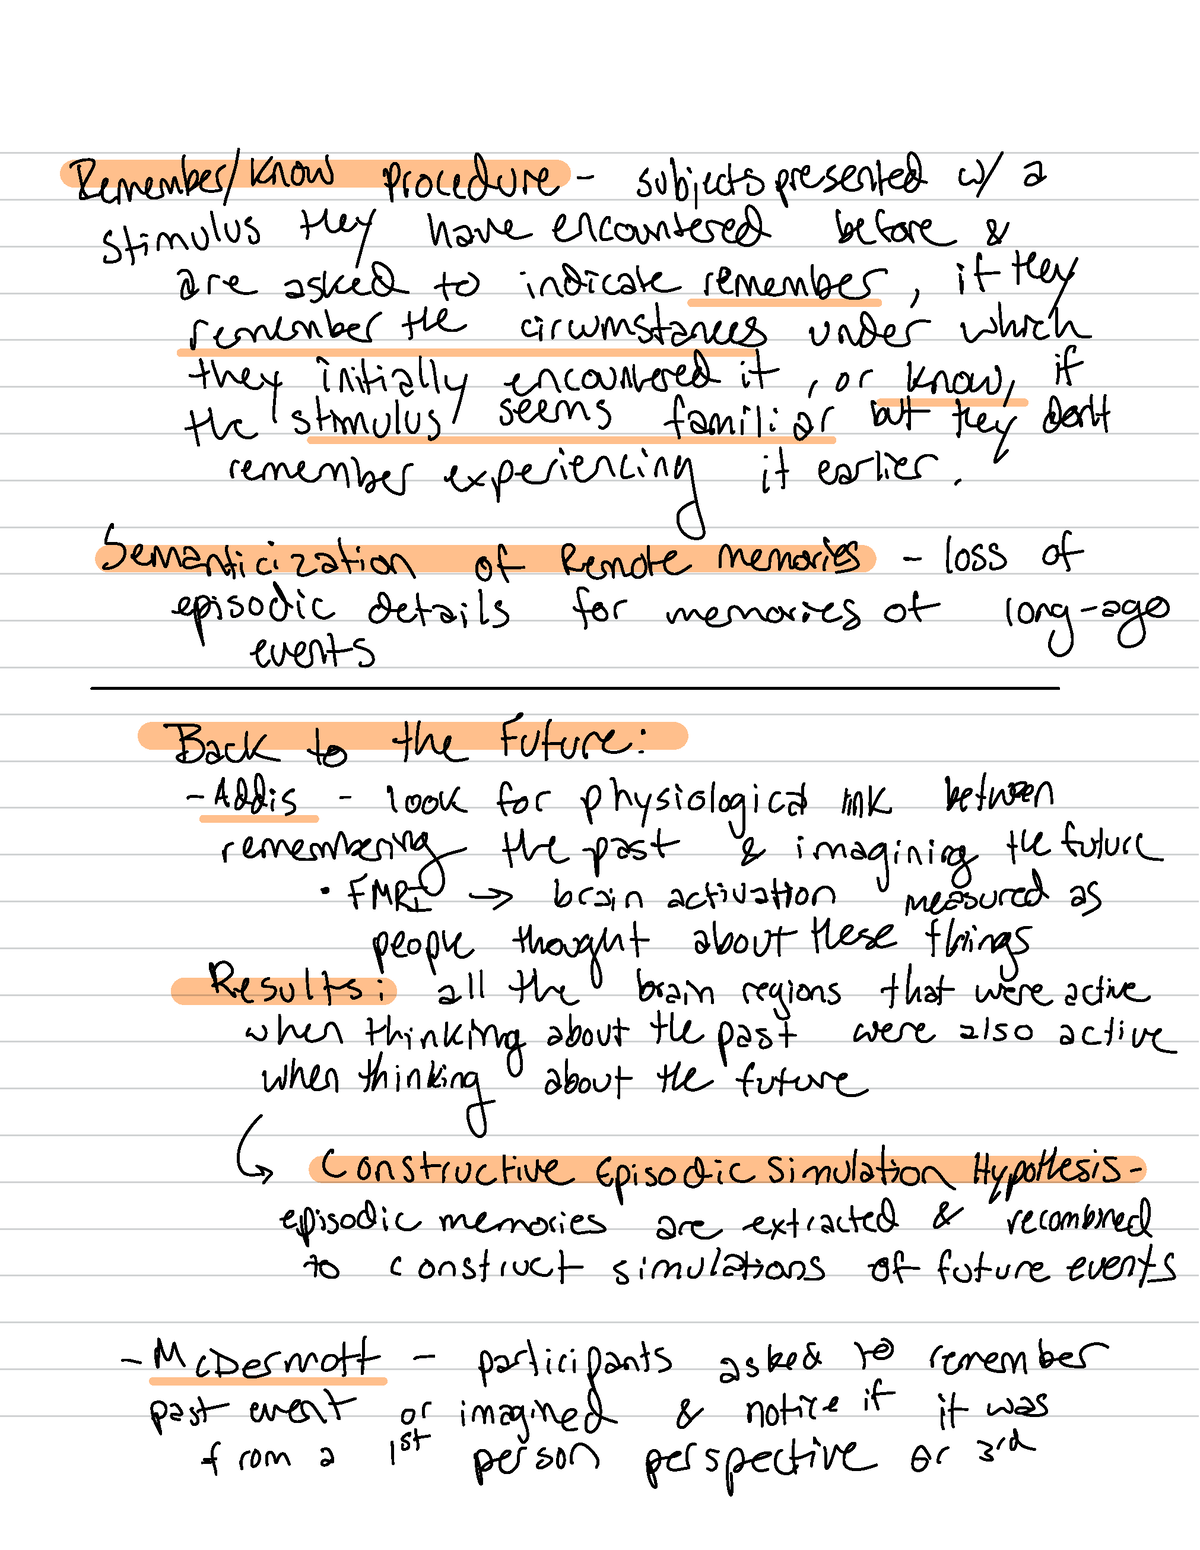 Remember/Know Procedure - subjects presented w/ a
stimulus they have encountered before &
are asked to indicate remember, if they
remember the circumstances under which
they initially encountered it, or know, if
the stimulus seems familiar but they don't
remember experiencing it earlier.
Semanticization of Remote memories - loss of
episodic details for memories of long-ago
events
Back to the Future:
- Addis - look for physiological link between
remembering the past & imagining the future
• FMRI → brain activation measured as
people thought about these things
Results: all the brain regions that were active
when thinking about the past were also active
when thinking about the future
Constructive Episodic Simulation Hypothesis -
episodic memories are extracted & recombined
to construct simulations of future events
- McDermott - participants asked to remember
past event or imagined & notice if it was
from a 1st person perspective or 3rd